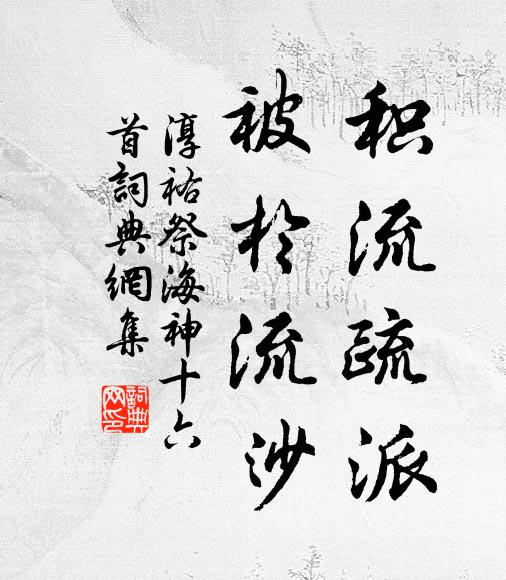 积流疏派
被於流沙
淳祐祭海神十六
首詞典網集
詞典网印